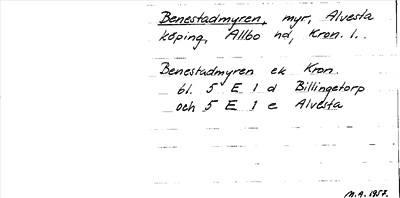 Benestadmyren, myr, Alvesta
köping, Allbo hd, Kron. l.
Benestadmyren ek Kron.
bl. 5 E 1 d Billingetorp
och 5 E 1 e Alvesta
M.A. 1957.